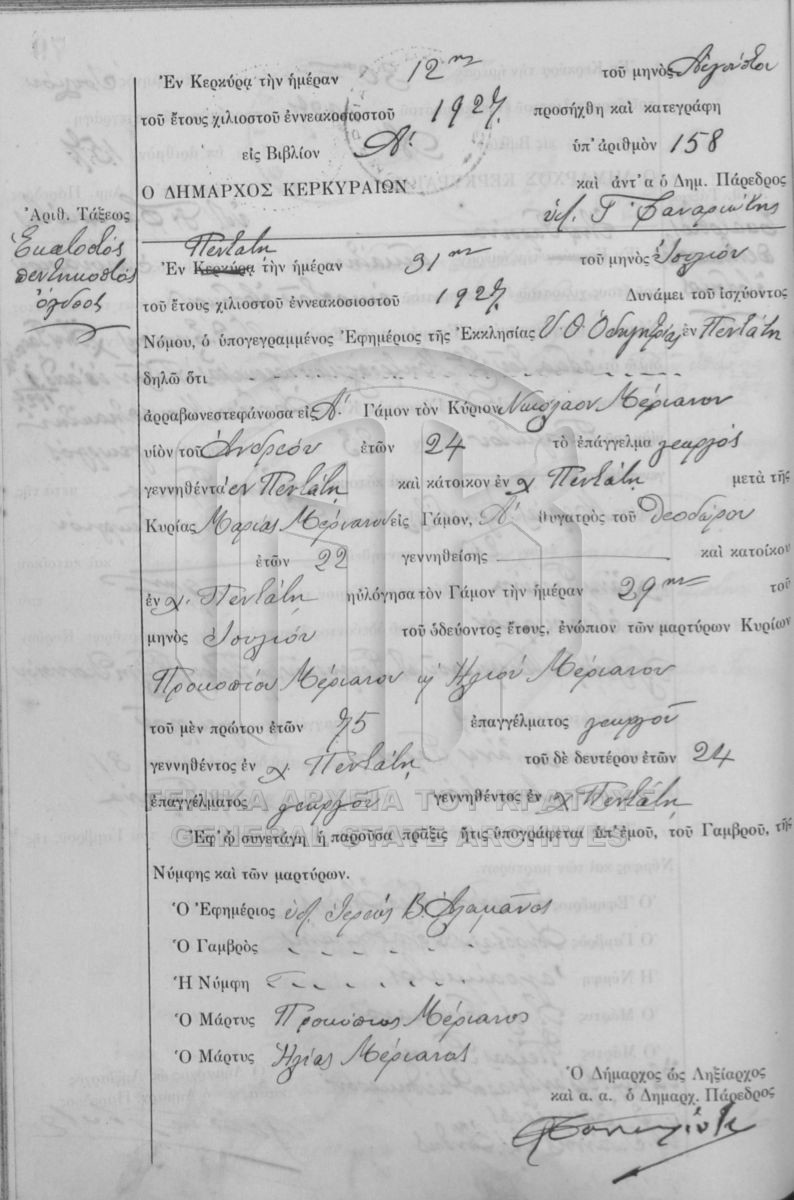 Ἐν Κερκύρᾳ τὴν ἡμέραν 12ην τοῦ μηνὸς Αὐγούστου
τοῦ ἔτους χιλιοστοῦ ἐννεακοσιοστοῦ 1927 προσήχθη καὶ κατεγράφη
εἰς Βιβλίον Α′ ὑπ' ἀριθμὸν 158
Ο ΔΗΜΑΡΧΟΣ ΚΕΡΚΥΡΑΙΩΝ καὶ ἀντ' α ὁ Δημ. Πάρεδρος
Ἀριθ. Τάξεως
Ἑκατοστός
πεντηκοστός
ὄγδοος
Πεντάτη
Ἐν Κερκύρᾳ τὴν ἡμέραν 31ην τοῦ μηνὸς Ἰουλίου
τοῦ ἔτους χιλιοστοῦ ἐννεακοσιοστοῦ 1927 Δυνάμει τοῦ ἰσχύοντος
Νόμου, ὁ ὑπογεγραμμένος Ἐφημέριος τῆς Ἐκκλησίας Υ. Θ. Ὁδηγητρίας ἐν Πεντάτη
δηλῶ ὅτι
ἀρραβωνεστεφάνωσα εἰς Α′ Γάμον τὸν Κύριον Νικόλαον Μέριανον
υἱὸν τοῦ Ἀνδρέου ἐτῶν 24 τὸ ἐπάγγελμα γεωργός
γεννηθέντα ἐν Πεντάτη καὶ κάτοικον ἐν χ Πεντάτη μετὰ τῆς
Κυρίας Μαρίας Μέριανου εἰς Γάμον, Α′ θυγατρὸς τοῦ Θεοδώρου
ἐτῶν 22 γεννηθείσης καὶ κατοίκου
ἐν χ. Πεντάτη ηὐλόγησα τὸν Γάμον τὴν ἡμέραν 29ην τοῦ
μηνὸς Ἰουλίου τοῦ ὁδεύοντος ἔτους, ἐνώπιον τῶν μαρτύρων Κυρίων
Προκοπίου Μέριανου κ Ἠλίου Μέριανου
τοῦ μὲν πρώτου ἐτῶν 75 ἐπαγγέλματος γεωργοῦ
γεννηθέντος ἐν χ. Πεντάτη τοῦ δὲ δευτέρου ἐτῶν 24
ἐπαγγέλματος γεωργοῦ γεννηθέντος ἐν χ Πεντάτη
ΓΕΝΙΚΑ ΑΡΧΕΙΑ ΤΟΥ ΚΡΑΤΟΥΣ
GENERAL STATE ARCHIVES
Ἐφ' ᾧ συνετάγη ἡ παροῦσα πρᾶξις ἥτις ὑπογράφεται ὑπ' ἐμοῦ, τοῦ Γαμβροῦ, τῆς
Νύμφης καὶ τῶν μαρτύρων.
Ὁ Ἐφημέριος ὑπ. Ἱερεὺς Β. Ἀλαμᾶνος
Ὁ Γαμβρὸς
Ἡ Νύμφη
Ὁ Μάρτυς Προκόπιος Μέριανος
Ὁ Μάρτυς Ἠλίας Μέριανος
Ὁ Δήμαρχος ὡς Ληξίαρχος
καὶ α. α. ὁ Δημαρχ. Πάρεδρος